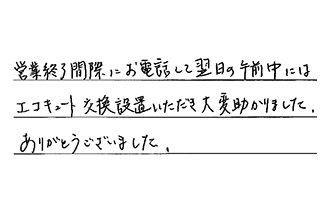 営業終了間際にお電話して翌日の午前中には
エコキュート交換設置いただき大変助かりました.
ありがとうございました.